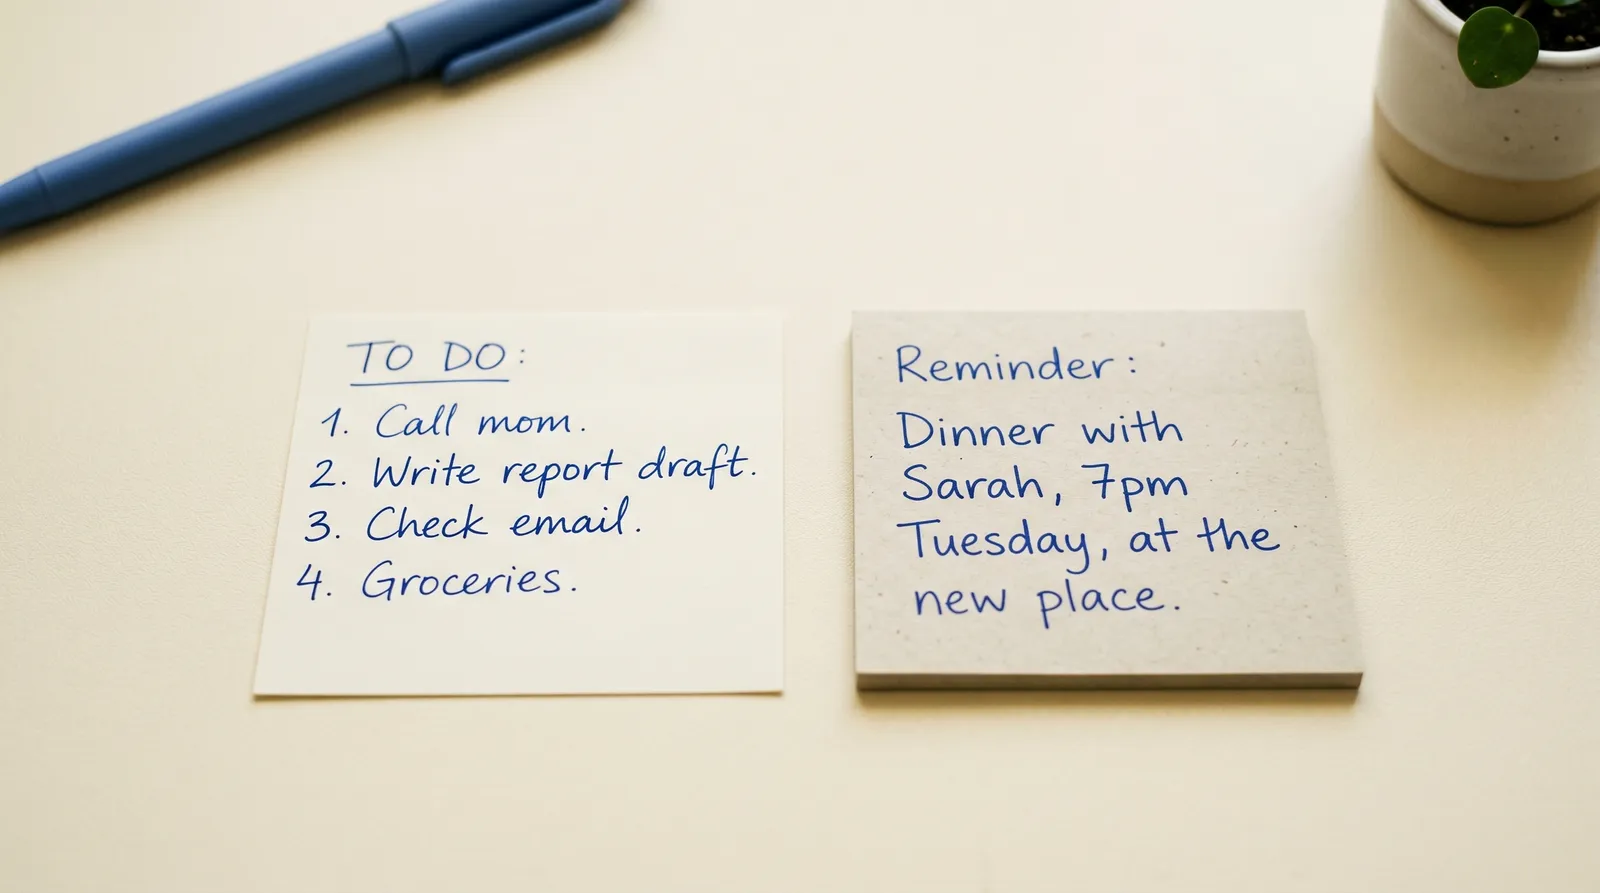 TO DO:
1. Call mom.
2. Write report draft.
3. Check email.
4. Groceries.
Reminder:
Dinner with
Sarah, 7pm
Tuesday, at the
new place.